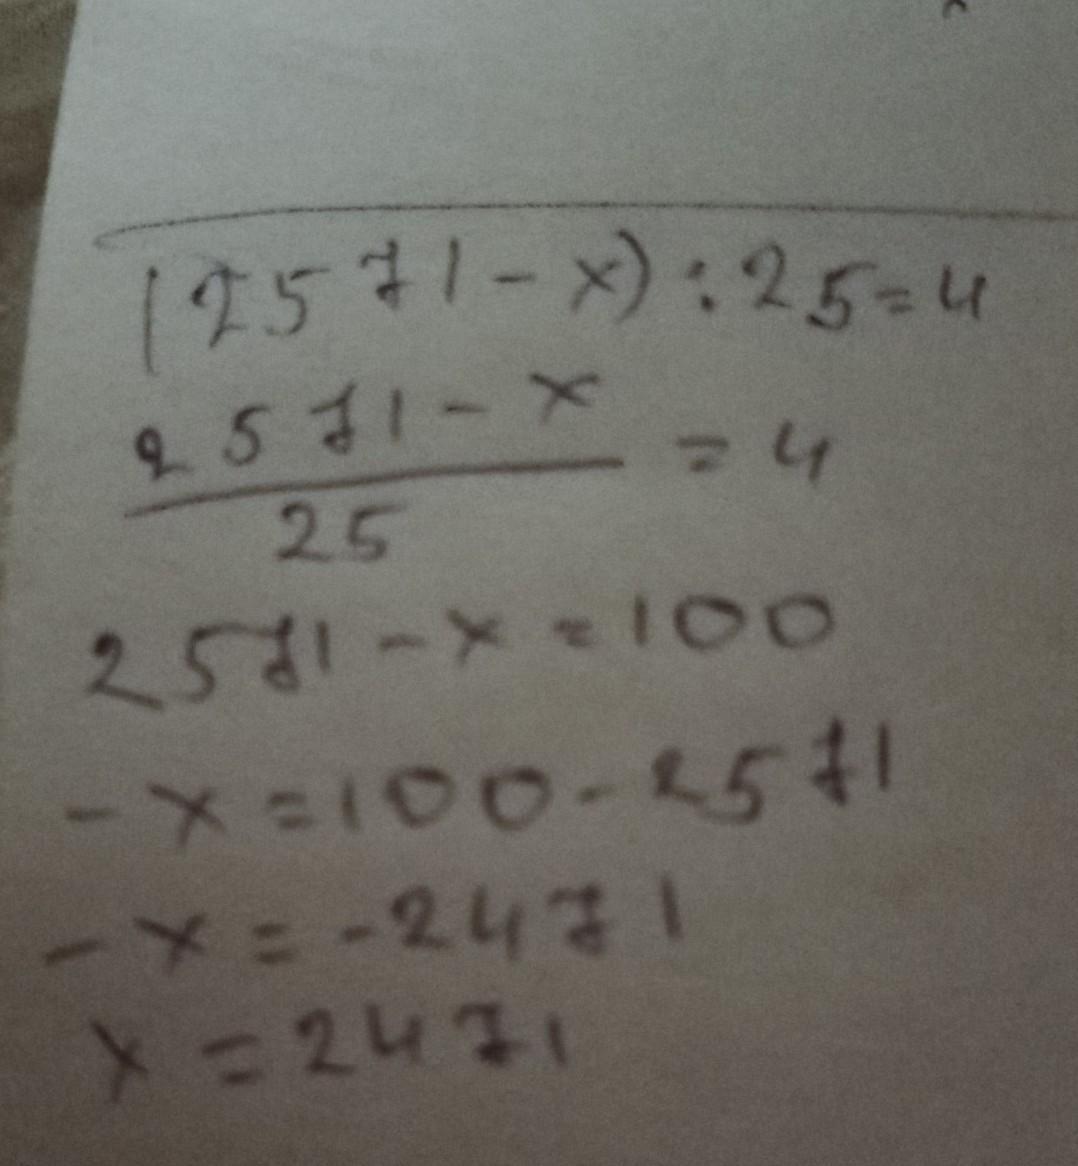 (2571-x):25=4
2571-x / 25 = 4
2571-x=100
-x=100-2571
-x=-2471
x=2471